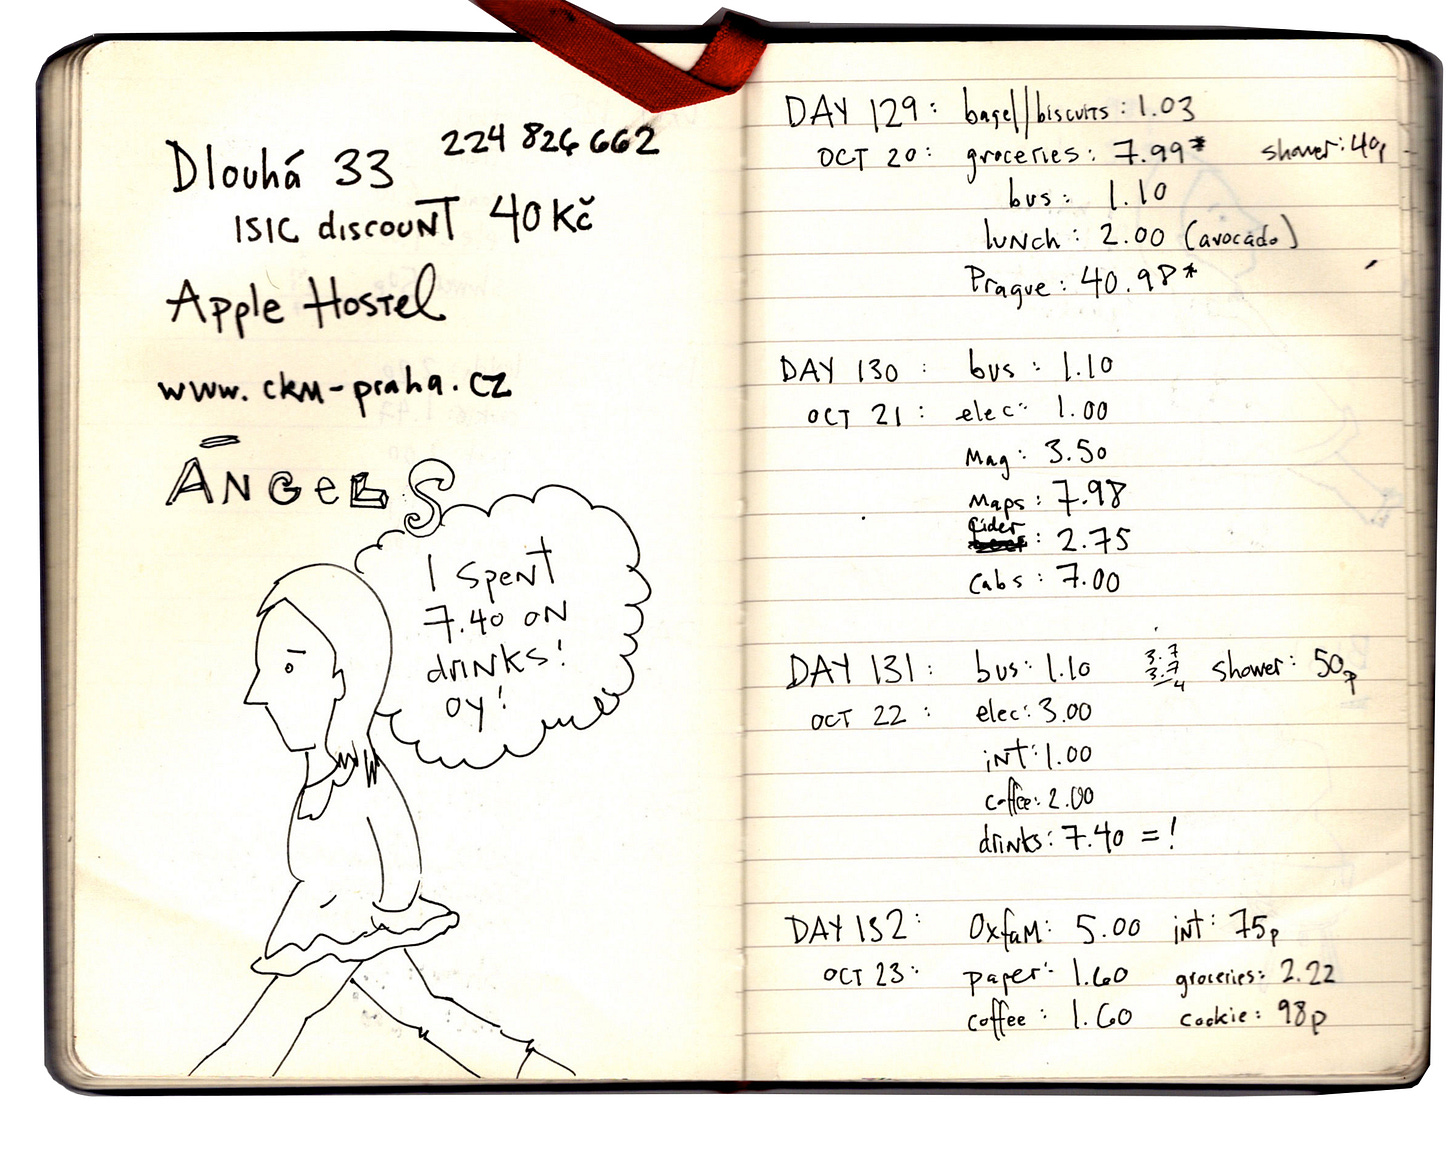 224 826 662
Dlouhá 33
ISIC discount 40 Kč
Apple Hostel
www.ckm-praha.cz
ANGELS
I spent
7.40 on
drinks!
oy!
DAY 129: bagel/biscuits: 1.03
OCT 20: groceries: 7.99* shower: 40p
bus: 1.10
lunch: 2.00 (avocado)
Prague: 40.98*
DAY 130: bus: 1.10
OCT 21: elec: 1.00
Mag: 3.50
Maps: 7.98
Cider: 2.75
Cabs: 7.00
DAY 131: bus: 1.10 3.7 3.7 shower: 50p
OCT 22: elec: 3.00
int: 1.00
coffee: 2.00
drinks: 7.40 = !
DAY 132: Oxfam: 5.00 int: 75p
OCT 23: paper: 1.60 groceries: 2.22
coffee: 1.60 cookie: 98p